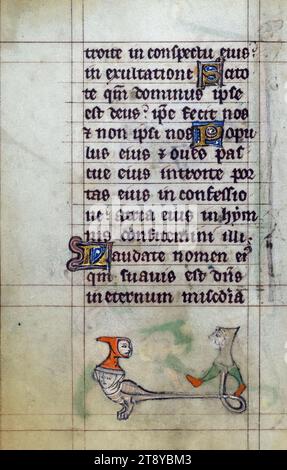 troite in conspectu eius:
in exultatione Scito
te qm dominus ipse
est deus: ipse fecit nos
& non ipsi nos Popu
lus eius & oves pas
cue eius introite por
tas eius in confessio
ne atria eius in hym
nis confitemini illi
Laudate nomen ei
qm suavis est dns
in eternum miscdia
alamy
Image ID: 2T8YBM3
www.alamy.com